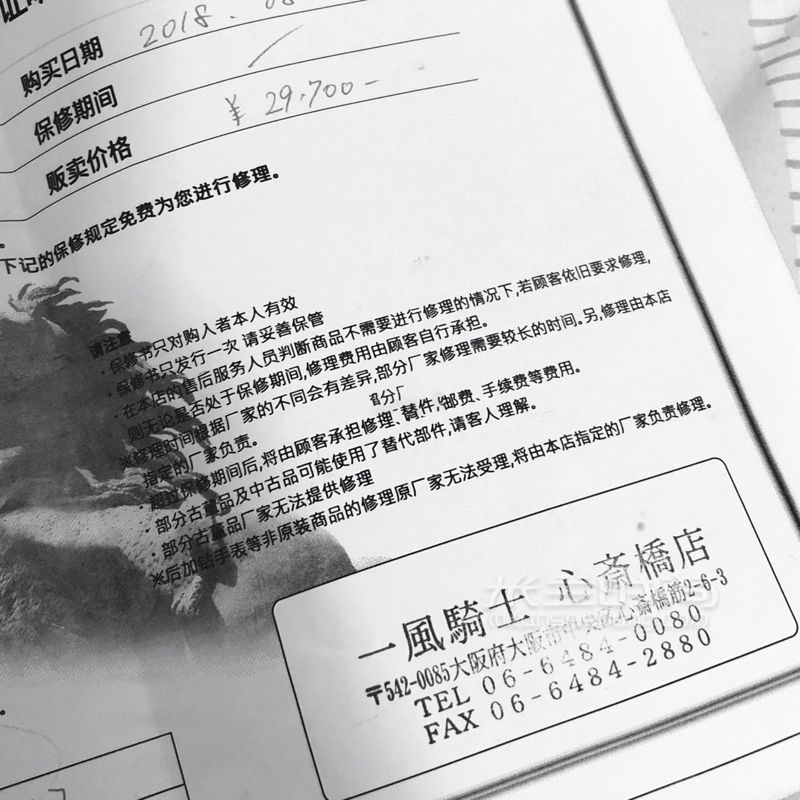 购买日期 2018.08
保修期间 /
贩卖价格 ¥29.700-
下记的保修规定免费为您进行修理。
请注意
·保修书只对购入者本人有效
·保修书只发行一次 请妥善保管
·在本店的售后服务人员判断商品不需要进行修理的情况下,若顾客依旧要求修理,
则无论是否处于保修期间,修理费用由顾客自行承担。
※修理时间根据厂家的不同会有差异,部分厂家修理需要较长的时间。另,修理由本店
指定的厂家负责。
部分厂
·超过保修期间后,将由顾客承担修理、替件,邮费、手续费等费用。
·部分古董品及中古品可能使用了替代部件,请客人理解。
·部分古董品厂家无法提供修理
※后加钻手表等非原装商品的修理原厂家无法受理,将由本店指定的厂家负责修理。
一風騎士 心斎橋店
〒542-0085大阪府大阪市中央区心斎橋筋2-6-3
TEL 06-6484-0080
FAX 06-6484-2880